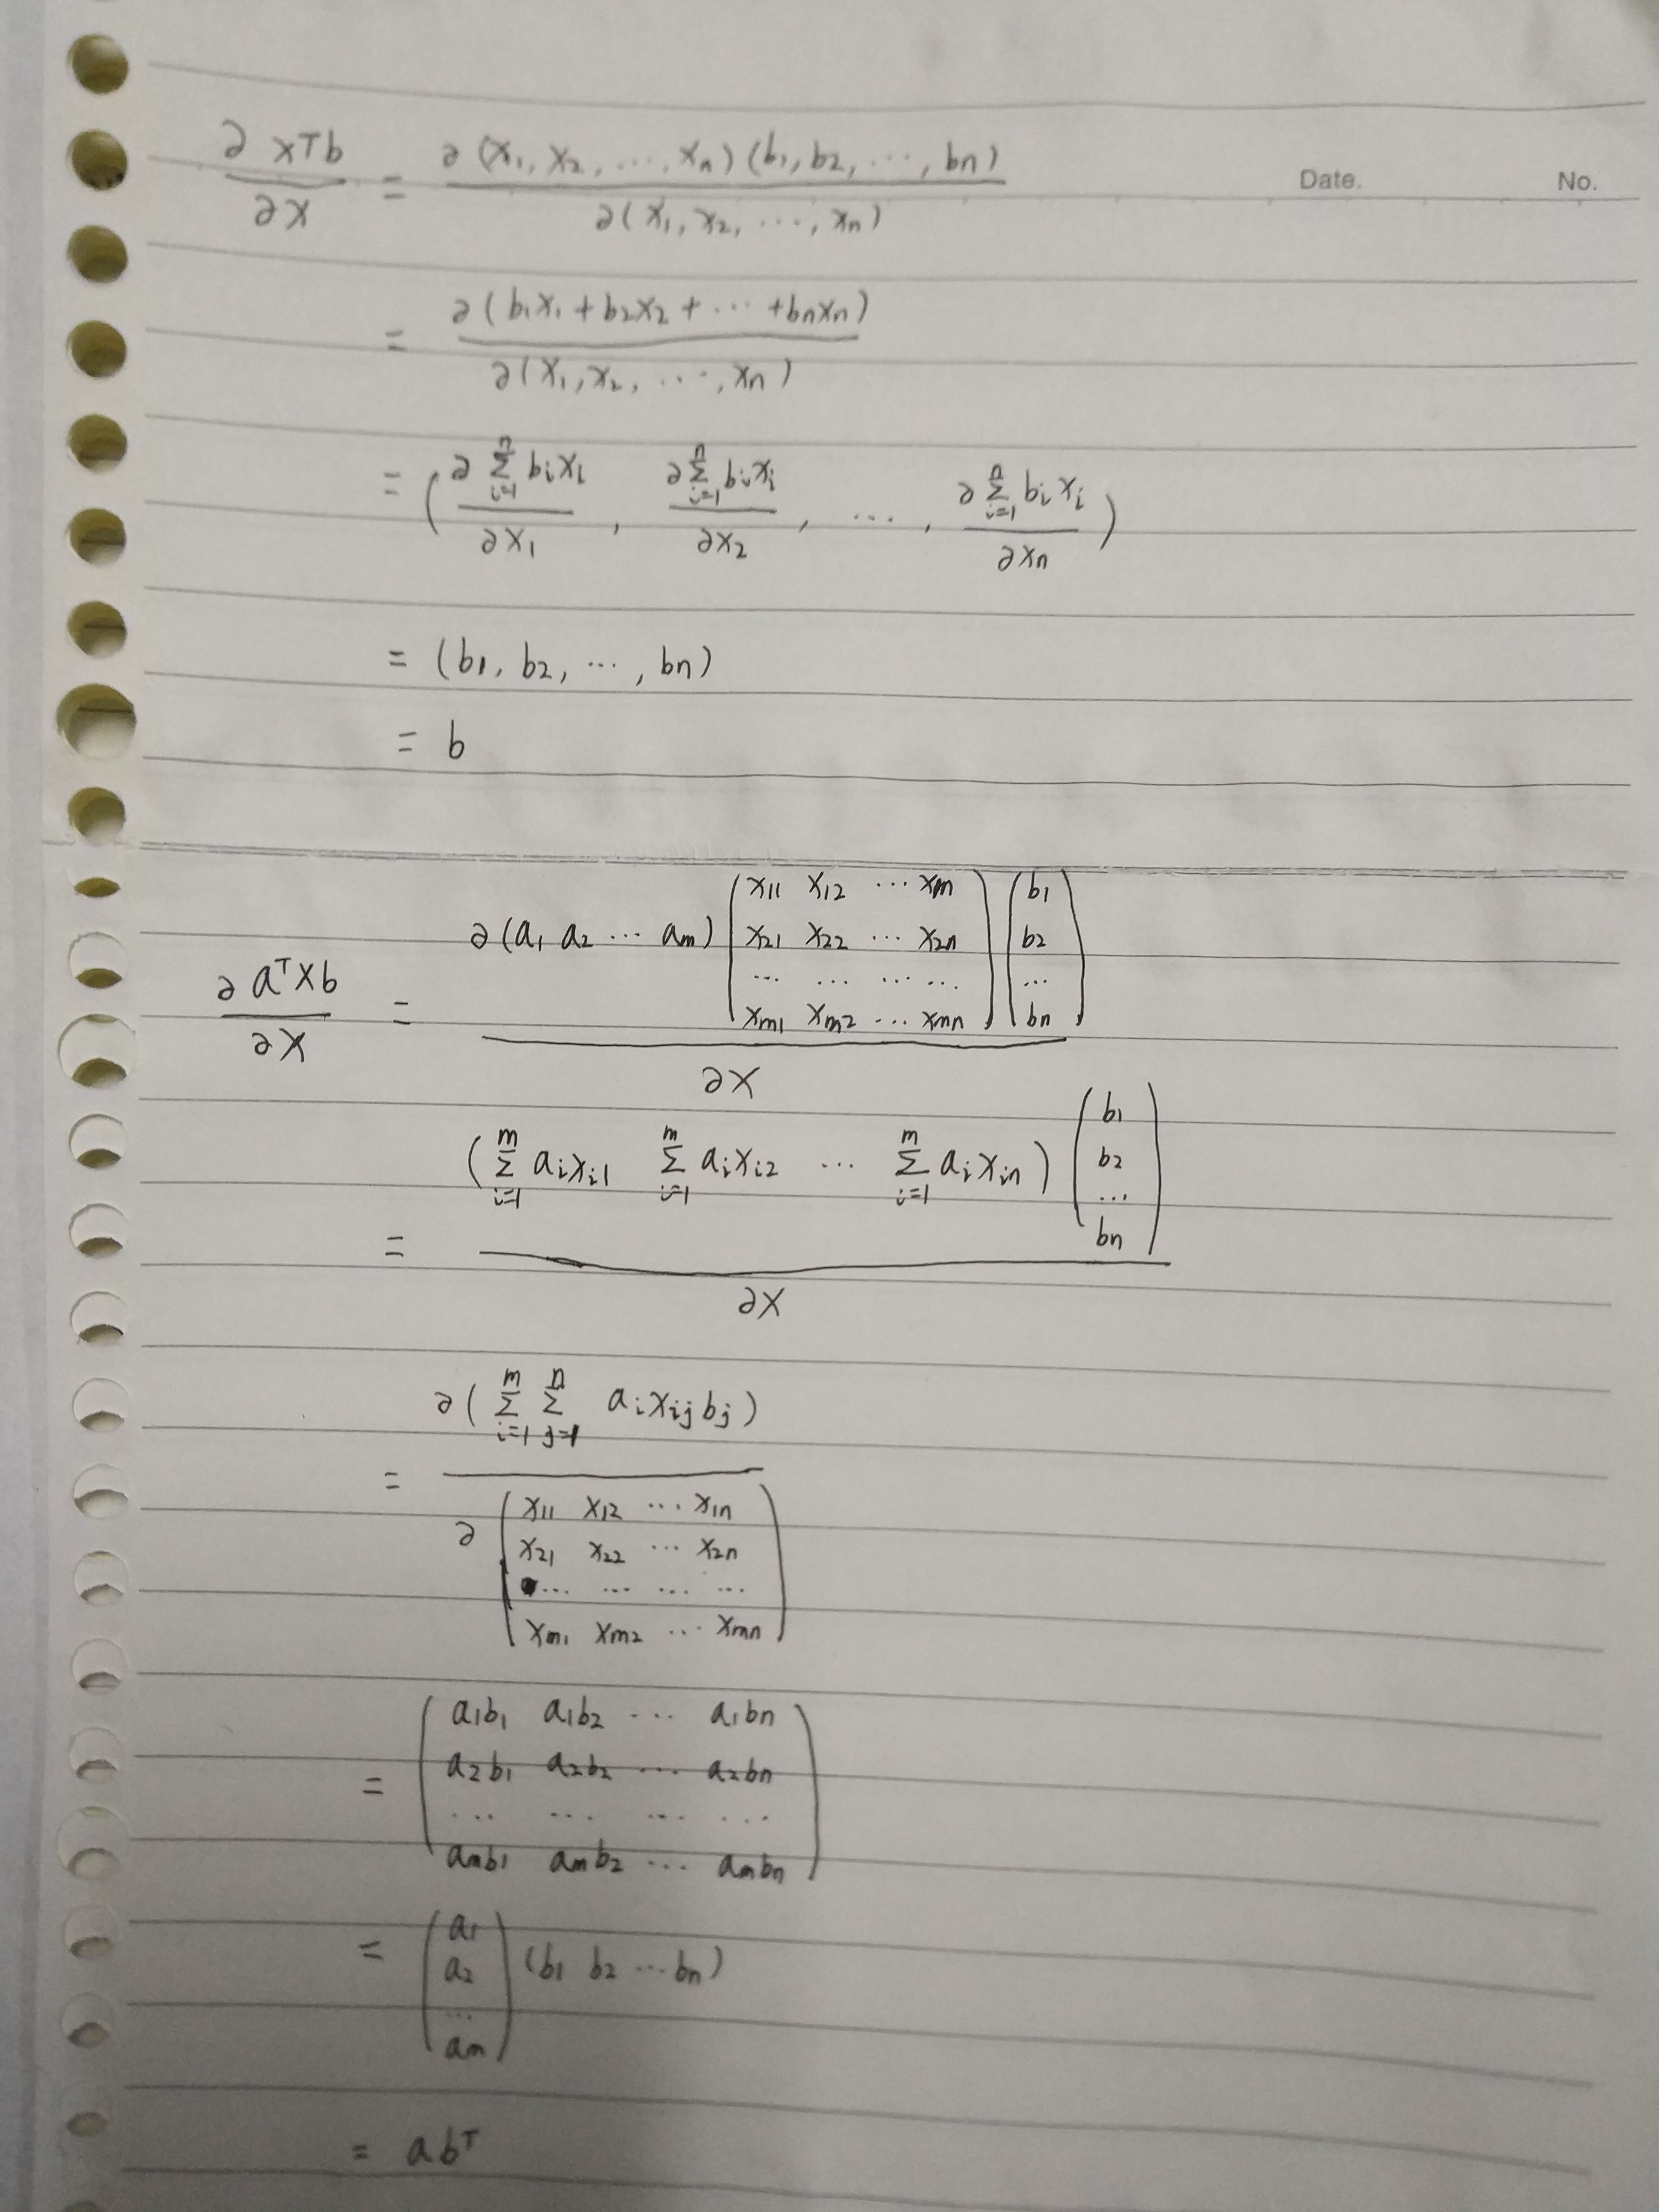 Date. No.
∂ x^T b / ∂x = ∂ (x₁, x₂, ..., xₙ) (b₁, b₂, ..., bₙ) / ∂(x₁, x₂, ..., xₙ)
= ∂ (b₁x₁ + b₂x₂ + ... + bₙxₙ) / ∂(x₁, x₂, ..., xₙ)
= (∂ Σ_{i=1}^{n} bᵢxᵢ / ∂x₁, ∂ Σ_{i=1}^{n} bᵢxᵢ / ∂x₂, ..., ∂ Σ_{i=1}^{n} bᵢxᵢ / ∂xₙ)
= (b₁, b₂, ..., bₙ)
= b
∂ a^T X b / ∂X = ∂ (a₁ a₂ ... aₘ) (x₁₁ x₁₂ ... xₘ ; x₂₁ x₂₂ ... x₂ₙ ; ... ... ... ... ; xₘ₁ xₘ₂ ... xₘₙ) (b₁ ; b₂ ; ... ; bₙ) / ∂X
= (Σ_{i=1}^{m} aᵢxᵢ₁ Σ_{i=1}^{m} aᵢxᵢ₂ ... Σ_{i=1}^{m} aᵢxᵢₙ) (b₁ ; b₂ ; ... ; bₙ) / ∂X
= ∂ (Σ_{i=1}^{m} Σ_{j=1}^{n} aᵢxᵢⱼbⱼ) / ∂ (x₁₁ x₁₂ ... x₁ₙ ; x₂₁ x₂₂ ... x₂ₙ ; ... ... ... ... ; xₘ₁ xₘ₂ ... xₘₙ)
= (a₁b₁ a₁b₂ ... a₁bₙ ; a₂b₁ a₂b₂ ... a₂bₙ ; ... ... ... ... ; aₘb₁ aₘb₂ ... aₘbₙ)
= (a₁ ; a₂ ; ... ; aₘ) (b₁ b₂ ... bₙ)
= a b^T